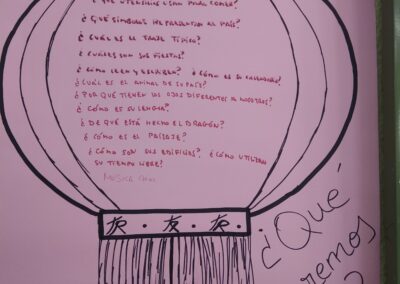 ¿QUÉ UTENSILIOS USAN PARA COMER?
¿QUÉ SÍMBOLOS REPRESENTAN AL PAÍS?
¿CUÁL ES EL TRAJE TÍPICO?
¿CUÁLES SON SUS FIESTAS?
¿CÓMO LEEN Y ESCRIBEN? ¿CÓMO ES SU CALENDARIO?
¿CUÁL ES EL ANIMAL DE SU PAÍS?
¿POR QUÉ TIENEN LOS OJOS DIFERENTES A NOSOTROS?
¿CÓMO ES SU LENGUA?
¿DE QUÉ ESTÁ HECHO EL DRAGÓN?
¿CÓMO ES EL PAISAJE?
¿CÓMO SON SUS EDIFICIOS? ¿CÓMO UTILIZAN
SU TIEMPO LIBRE?
MÚSICA
¿Qué
remos